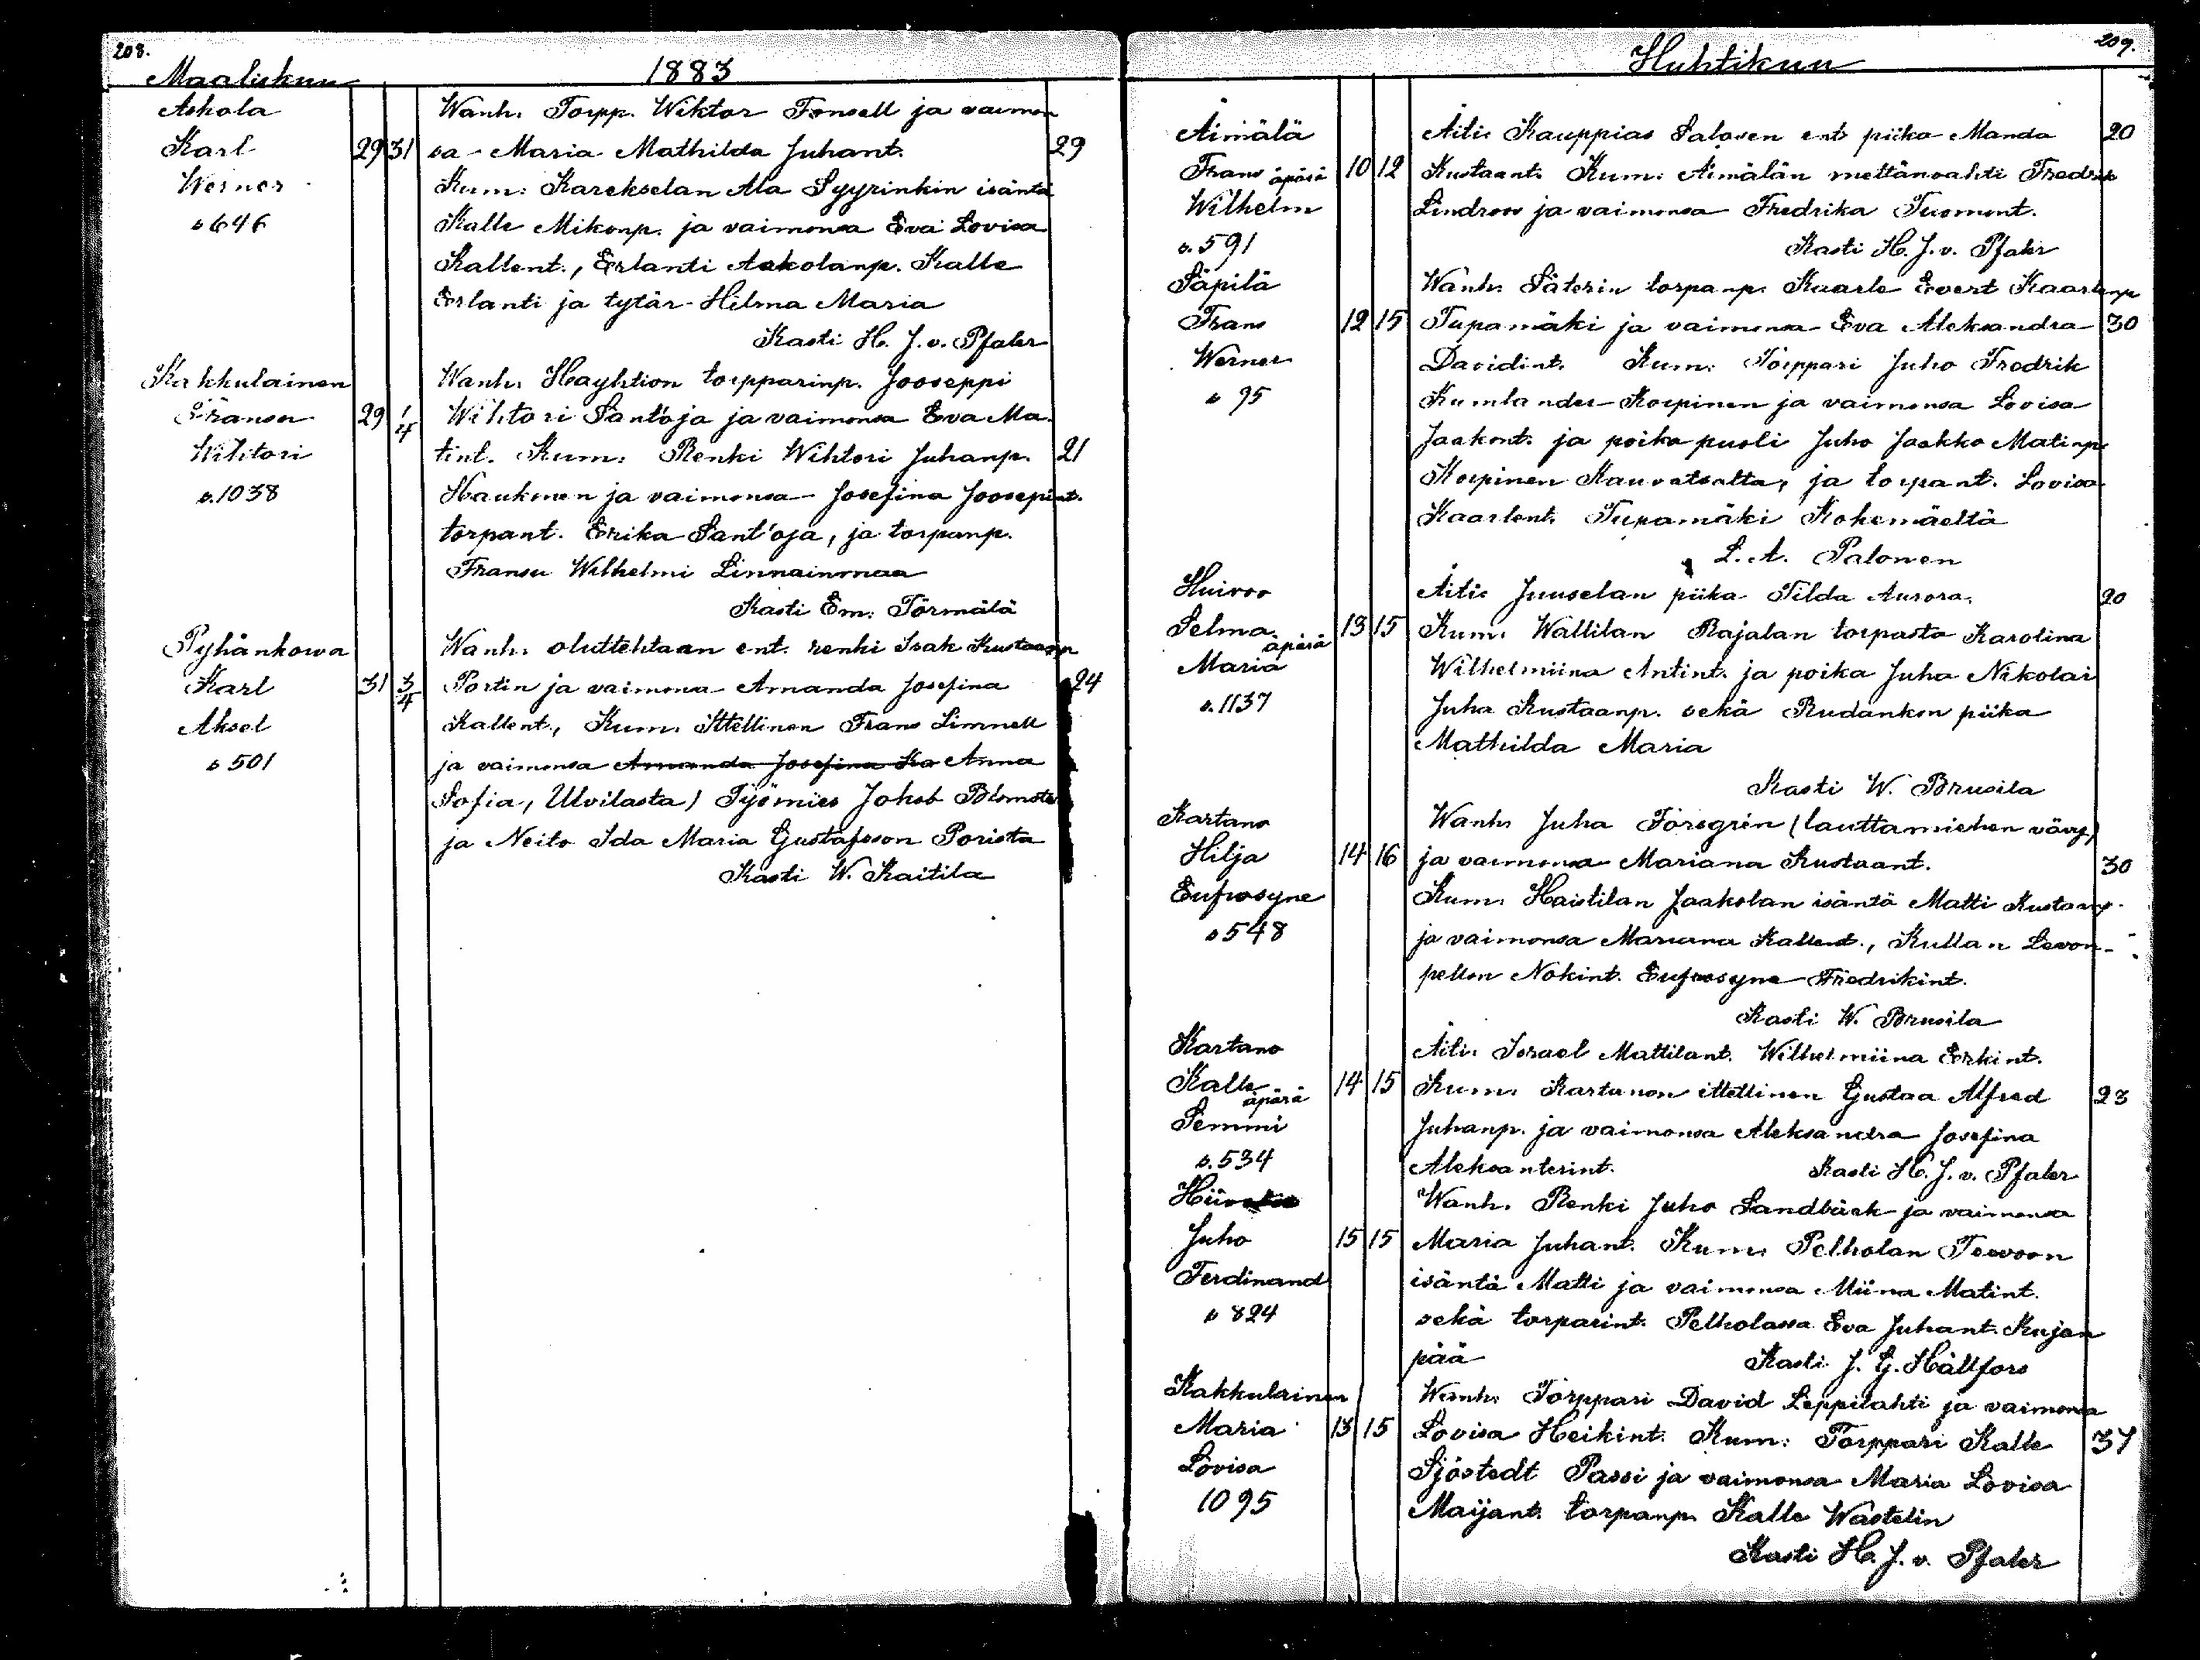 208.
Maaliskuu 1883
Askola Wanh. Torpp. Wiktor Fonsell ja vaimon
Karl 29 31 sa Maria Mathilda Juhant. 29
Werner Kum: Karekselan Ala Syyrinkin isäntä
s 646 Kalle Mikonp. ja vaimonsa Eva Lovisa
Kallent., Erlanti Askolanp. Kalle
Erlanti ja tytär Hilma Maria
Kasti H. J. v. Pfaler
Kakkulainen Wanh. Hayhtion torpparinp. Jooseppi
Fransu 29 1/4 Wihtori Santoja ja vaimonsa Eva Ma
Wihtori tint. Kum: Renki Wihtori Juhanp. 21
s. 1038 Haukonen ja vaimonsa Josefina Joosepint.
torpant. Erika Sant'oja, ja torpanp.
Fransu Wilhelmi Linnainmaa
Kasti Em. Törmälä
Pyhänkorva Wanh. oluttehtaan ent. renki Isak Kustaanp
Karl 31 3/4 Portin ja vaimonsa Amanda Josefina 24
Aksel Kallent., Kum. Ittellinen Frans Limnell
s 501 ja vaimonsa Amanda Josefina Ka Anna
Sofia, Ulvilasta) Työmies Johob Blomster
ja Neito Ida Maria Gustafsson Porista
Kasti W. Kaitila
Huhtikuu 209.
Äimälä Äiti: Kauppias Salosen ent piika Manda 20
Frans äpärä 10 12 Kustaant. Kum: Äimälän mettänvahti Fredrik
Wilhelm Lindroos ja vaimonsa Fredrika Tuomont.
s. 591 Kasti H. J. v. Pfaler
Säpilä Wanh. Säterin torpanp. Kaarle Evert Kaarlenp
Frans 12 15 Tupamäki ja vaimonsa Eva Aleksandra 30
Werner Davidint. Kum: Torppari Juho Fredrik
s 95 Kumlander Korpinen ja vaimonsa Lovisa
Jaakont. ja poika puoli Juho Jaakko Matinp.
Korpinen Kauvatsalta, ja torpant. Lovisa
Kaarlent. Tupamäki Kokemäeltä
L. A. Palonen
Huivoo Äiti: Juuselan piika Tilda Aurora. 20
Selma äpärä 13 15 Kum: Wallilan Rajalan torpasta Karolina
Maria Wilhelmiina Antint. ja poika Juha Nikolai
s. 1137 Juha Kustaanp. sekä Rudankon piika
Mathilda Maria
Kasti W. Brusila
Kartano Wanh. Juha Forsgrén (lauttamiehen vävy)
Hilja 14 16 ja vaimonsa Mariana Kustaant. 30
Eufrosyne Kum: Haistilan Jaakolan isäntä Matti Kustaanp.
s 548 ja vaimonsa Mariana Kallent., Kullan Levon-
pellon Nokint. Eufrosyne Fredrikint.
Kasti W. Brusila
Kartano Äiti: Israel Mattilant. Wilhelmiina Erkint.
Kalle äpärä 14 15 Kum: Kartanon ittellinen Gustaa Alfred 23
Semmi Juhanp. ja vaimonsa Aleksandra Josefina
s. 534 Aleksanterint. Kasti H. J. v. Pfaler
Wanh. Renki Juho Sandbäck ja vaimonsa
Juho 15 15 Maria Juhant. Kum: Pelholan Teevoon
Ferdinand isäntä Matti ja vaimonsa Miina Matint.
s 824 sekä torparint. Pelholassa Eva Juhant. Kujan
pää Kasti J. G. Hällfors
Kakkulainen Wanh. Torppari David Leppilahti ja vaimonsa
Maria 13 15 Lovisa Heikint. Kum: Torppari Kalle 37
Lovisa Sjöstedt Passi ja vaimonsa Maria Lovisa
1095 Maijant. torpanp. Kalle Wastelin
Kasti H. J. v. Pfaler